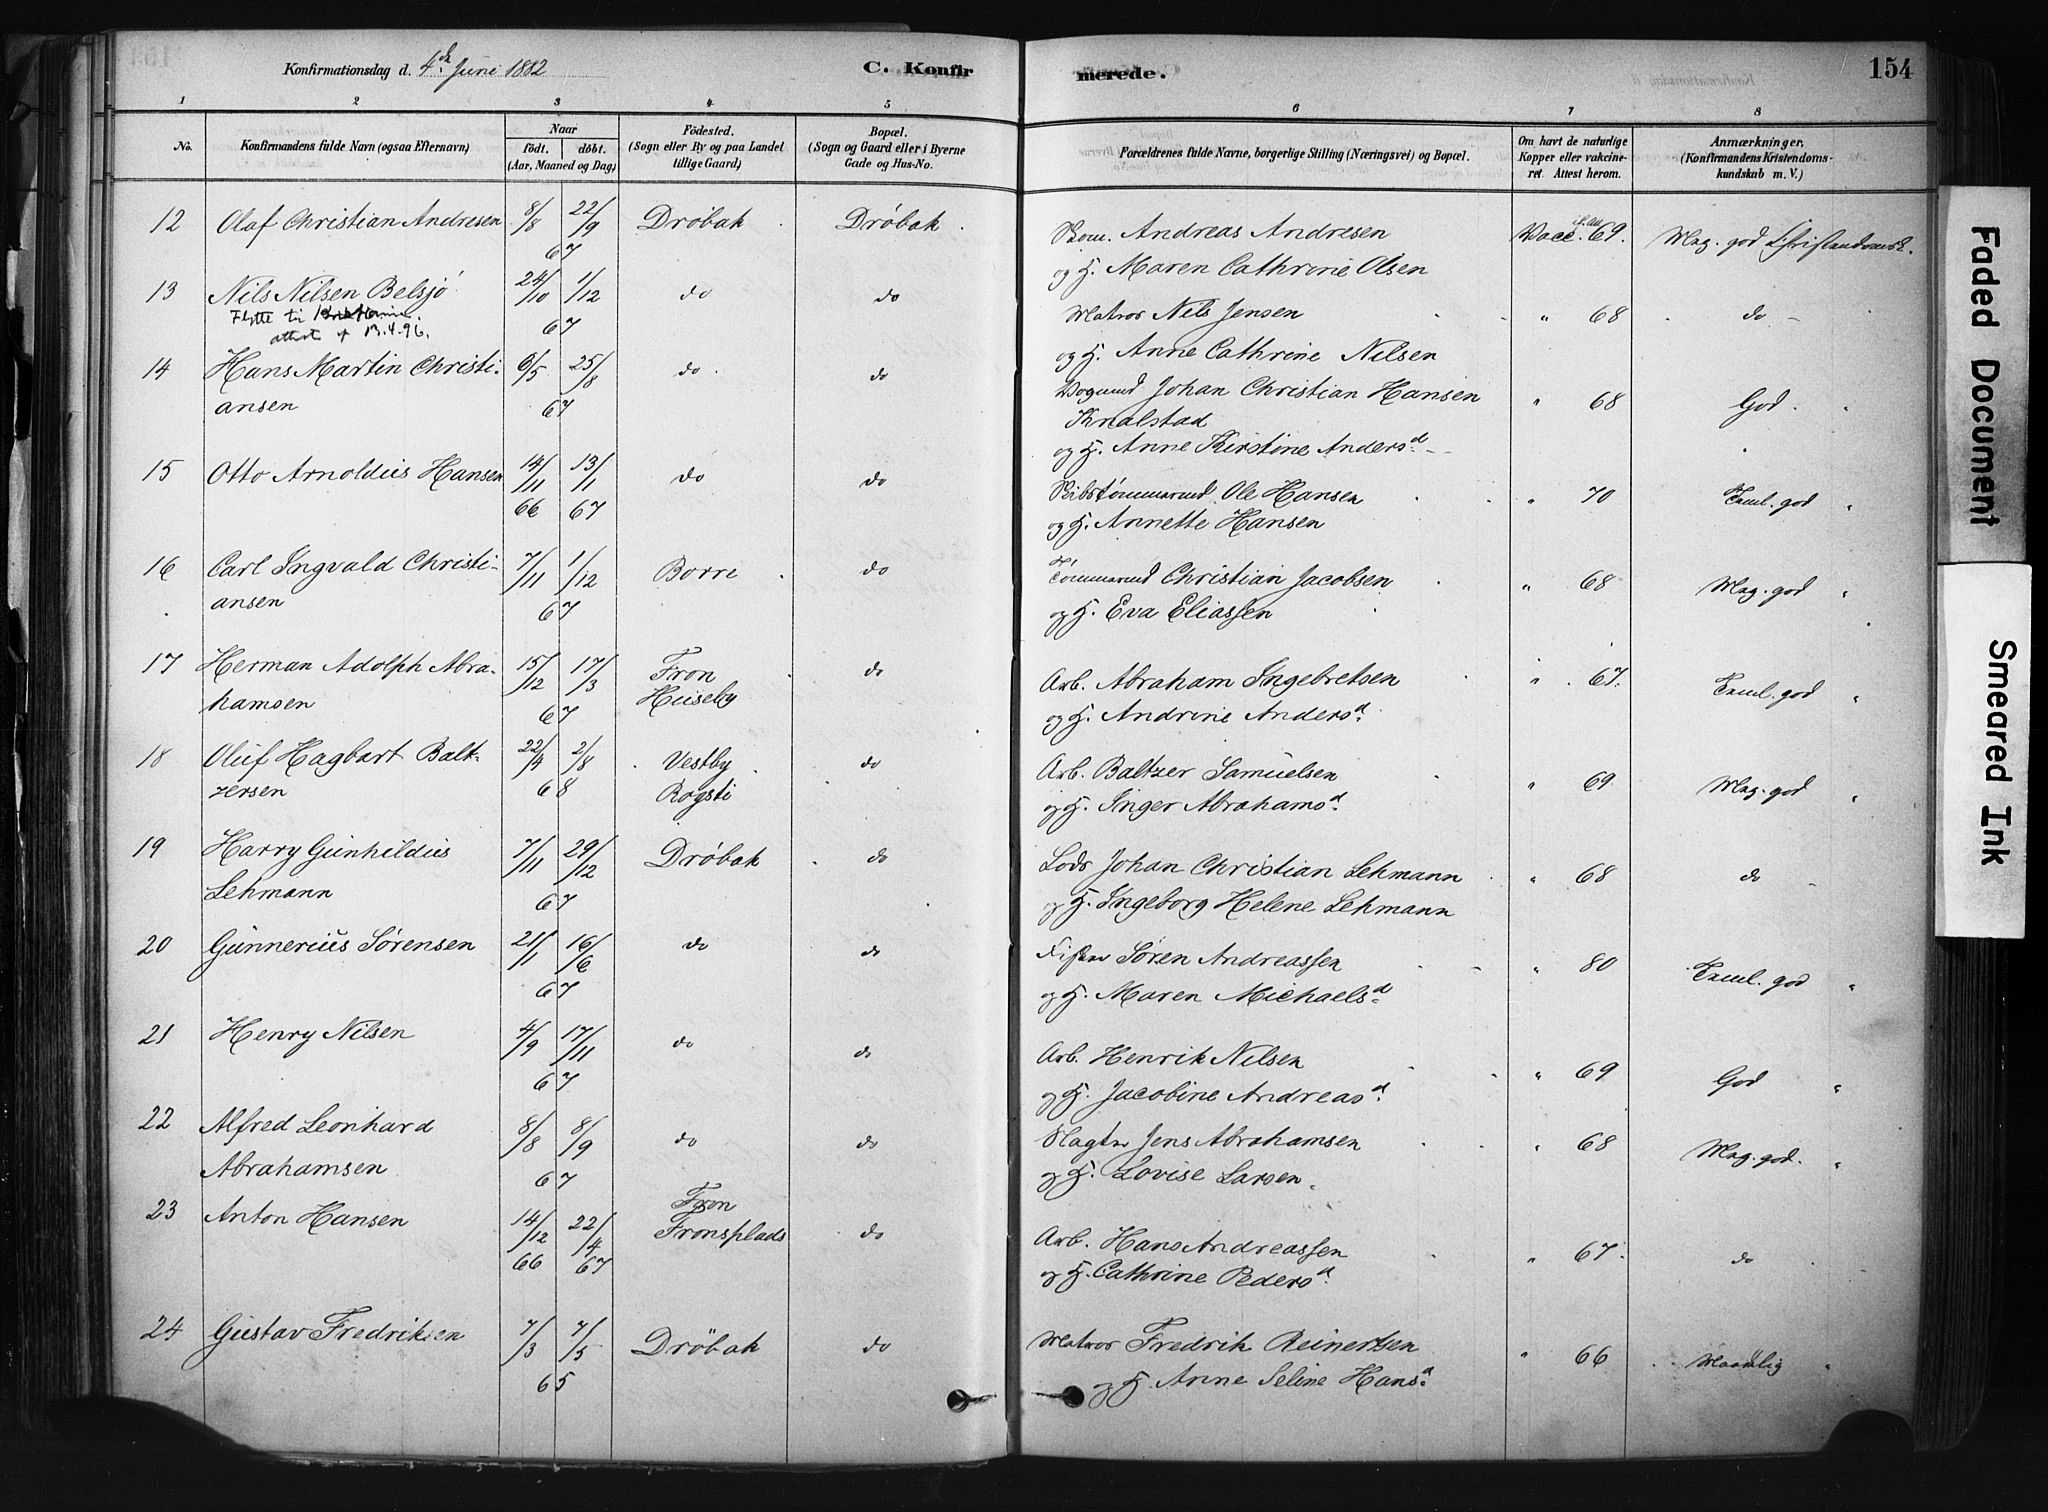 Konfirmationsdag d. 4de Juni 1882
C. Konfir
merede.
154
1 2 3 4 5 6 7 8
No.
Konfirmandens fulde Navn (ogsaa Efternavn)
Naar
født. døbt.
(Aar, Maaned og Dag)
Födested.
(Sogn eller By og paa Landet
tillige Gaard)
Bopæl.
(Sogn og Gaard eller i Byerne
Gade og Hus-No.
Forældrenes fulde Navne, borgerlige Stilling (Næringsvei) og Bopæl.
Om havt de naturlige
Kopper eller vakcine-
ret. Attest herom.
Anmærkninger.
(Konfirmandens Kristendoms-
kundskab m. V.)
12 Olaf Christian Andresen 8/8 22/9 67 Drøbak Drøbak
Skom. Andreas Andresen Vacc. 69. Meg. god Christendomsk.
og H. Maren Cathrine Olsen
13 Nils Nilsen Belsjö 24/10 1/12 67 do do
Flytte til
attest 13.4.96.
Matros Nils Jensen " 68 do
og H. Anne Cathrine Nilsen
14 Hans Martin Christi-
ansen 6/5 25/8 67 do do
Vognmd Johan Christian Hansen " 68 God
Knalstad
og H. Anne Kirstine Andersd
15 Otto Arnoldus Hansen 14/11 66 13/1 67 do do
Skibstømmermd Ole Hansen " 70 Teml. god "
og H. Annette Hansen
16 Carl Ingvald Christi-
ansen 7/11 1/12 67 Borre do
Tømmermd Christian Jacobsen " 68 Meg. god "
og H. Eva Eliassen
17 Herman Adolph Abra-
hamsen 15/12 17/3 67 Fron
Huseby do
Arb. Abraham Ingebretsen " 67. Teml. god "
og H. Andrine Andersd.
18 Oluf Hagbart Balt-
zersen 22/4 2/8 68 Vestby
Rogsti do
Arb. Baltzer Samuelsen " 69. Meg. god "
og H. Inger Abrahamsd.
19 Harry Gunhildius
Lehmann 7/11 29/12 67 Drøbak do
Lods Johan Christian Lehmann " 68 do
og H. Ingeborg Helene Lehmann
20 Gunnerius Sørensen 21/1 16/6 67 do do
Fisker Søren Andreassen " 80 Teml. god "
og H. Maren Michaelsd
21 Henry Nilsen 4/9 17/11 67 do do
Arb. Henrik Nilsen " 69 God "
og H. Jacobine Andreasd.
22 Alfred Leonhard
Abrahamsen 8/8 8/9 67 do do
Slagter Jens Abrahamsen " 68 Meg. god. "
og H. Lovise Larsen
23 Anton Hansen 14/12 66 22/4 67 Fron
Fronsplads do
Arb. Hans Andreassen " 67. do
og H. Cathrine Pedersd.
24 Gustav Fredriksen 7/3 7/5 65 Drøbak do
Matros Fredrik Reinertsen " 66 Maadelig "
og H. Anne Seline Hansd
Faded Document
Smeared Ink